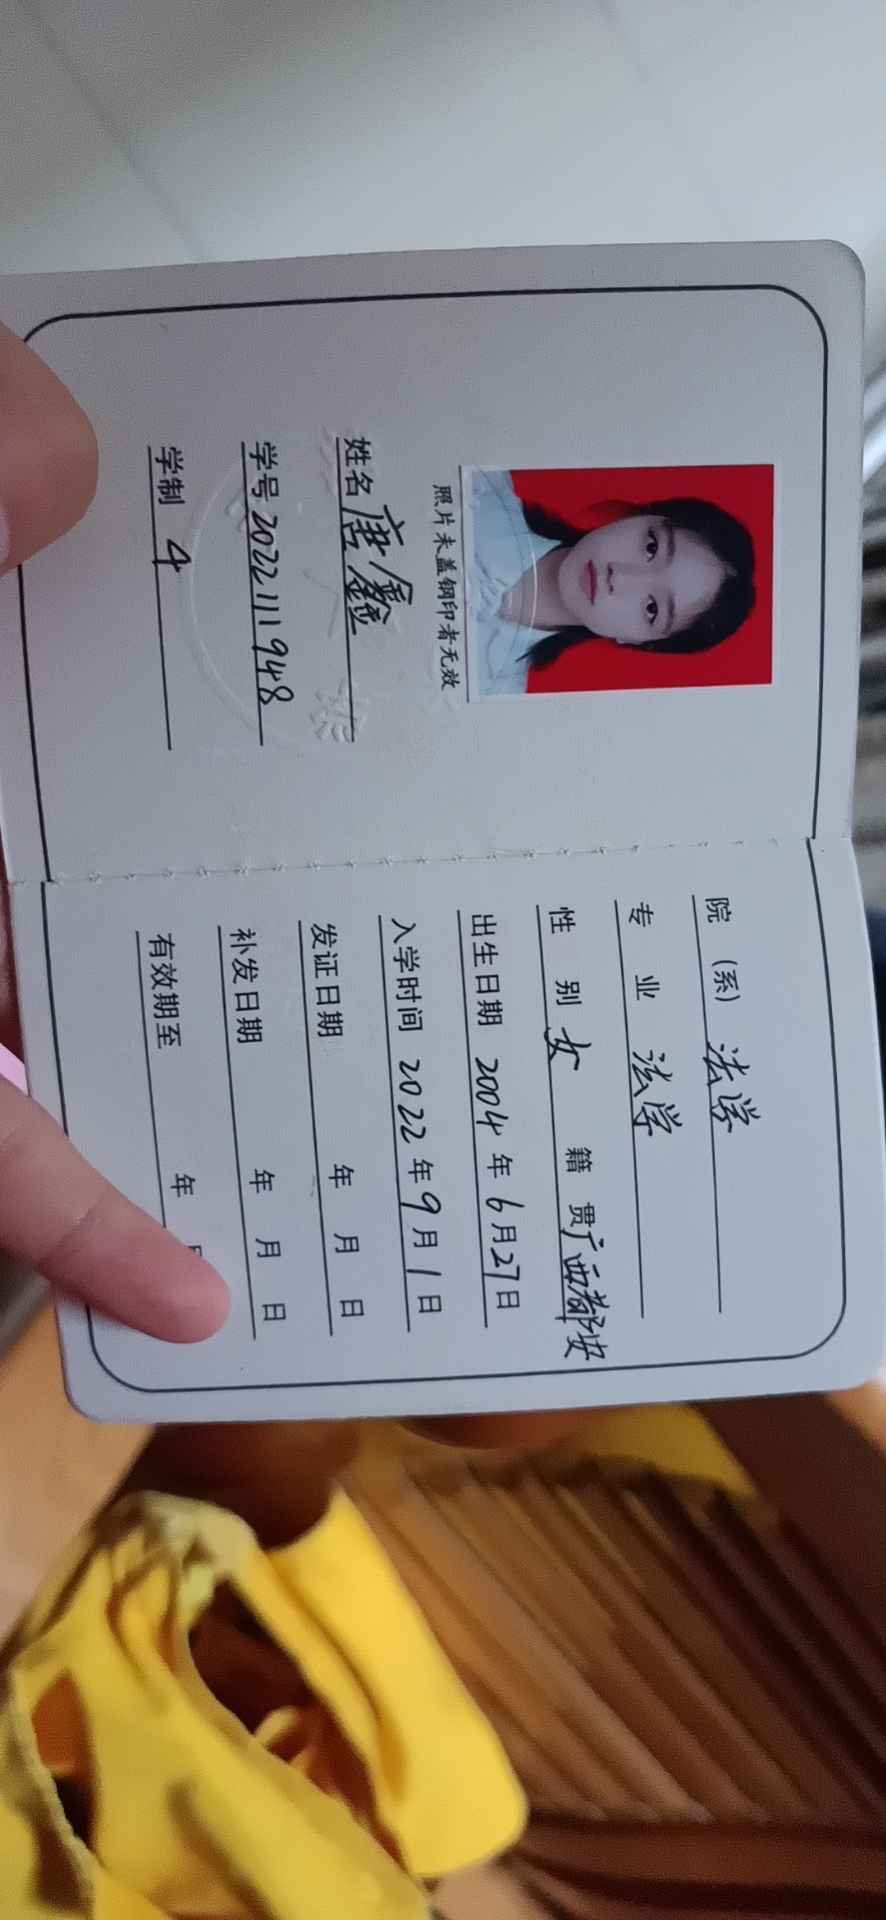 照片未盖钢印者无效
姓名 唐鑫
学号 2022111948
学制 4
院（系） 法学
专业 法学
性别 女 籍贯 广西都安
出生日期 2004年6月27日
入学时间 2022年9月1日
发证日期 年 月 日
补发日期 年 月 日
有效期至 年